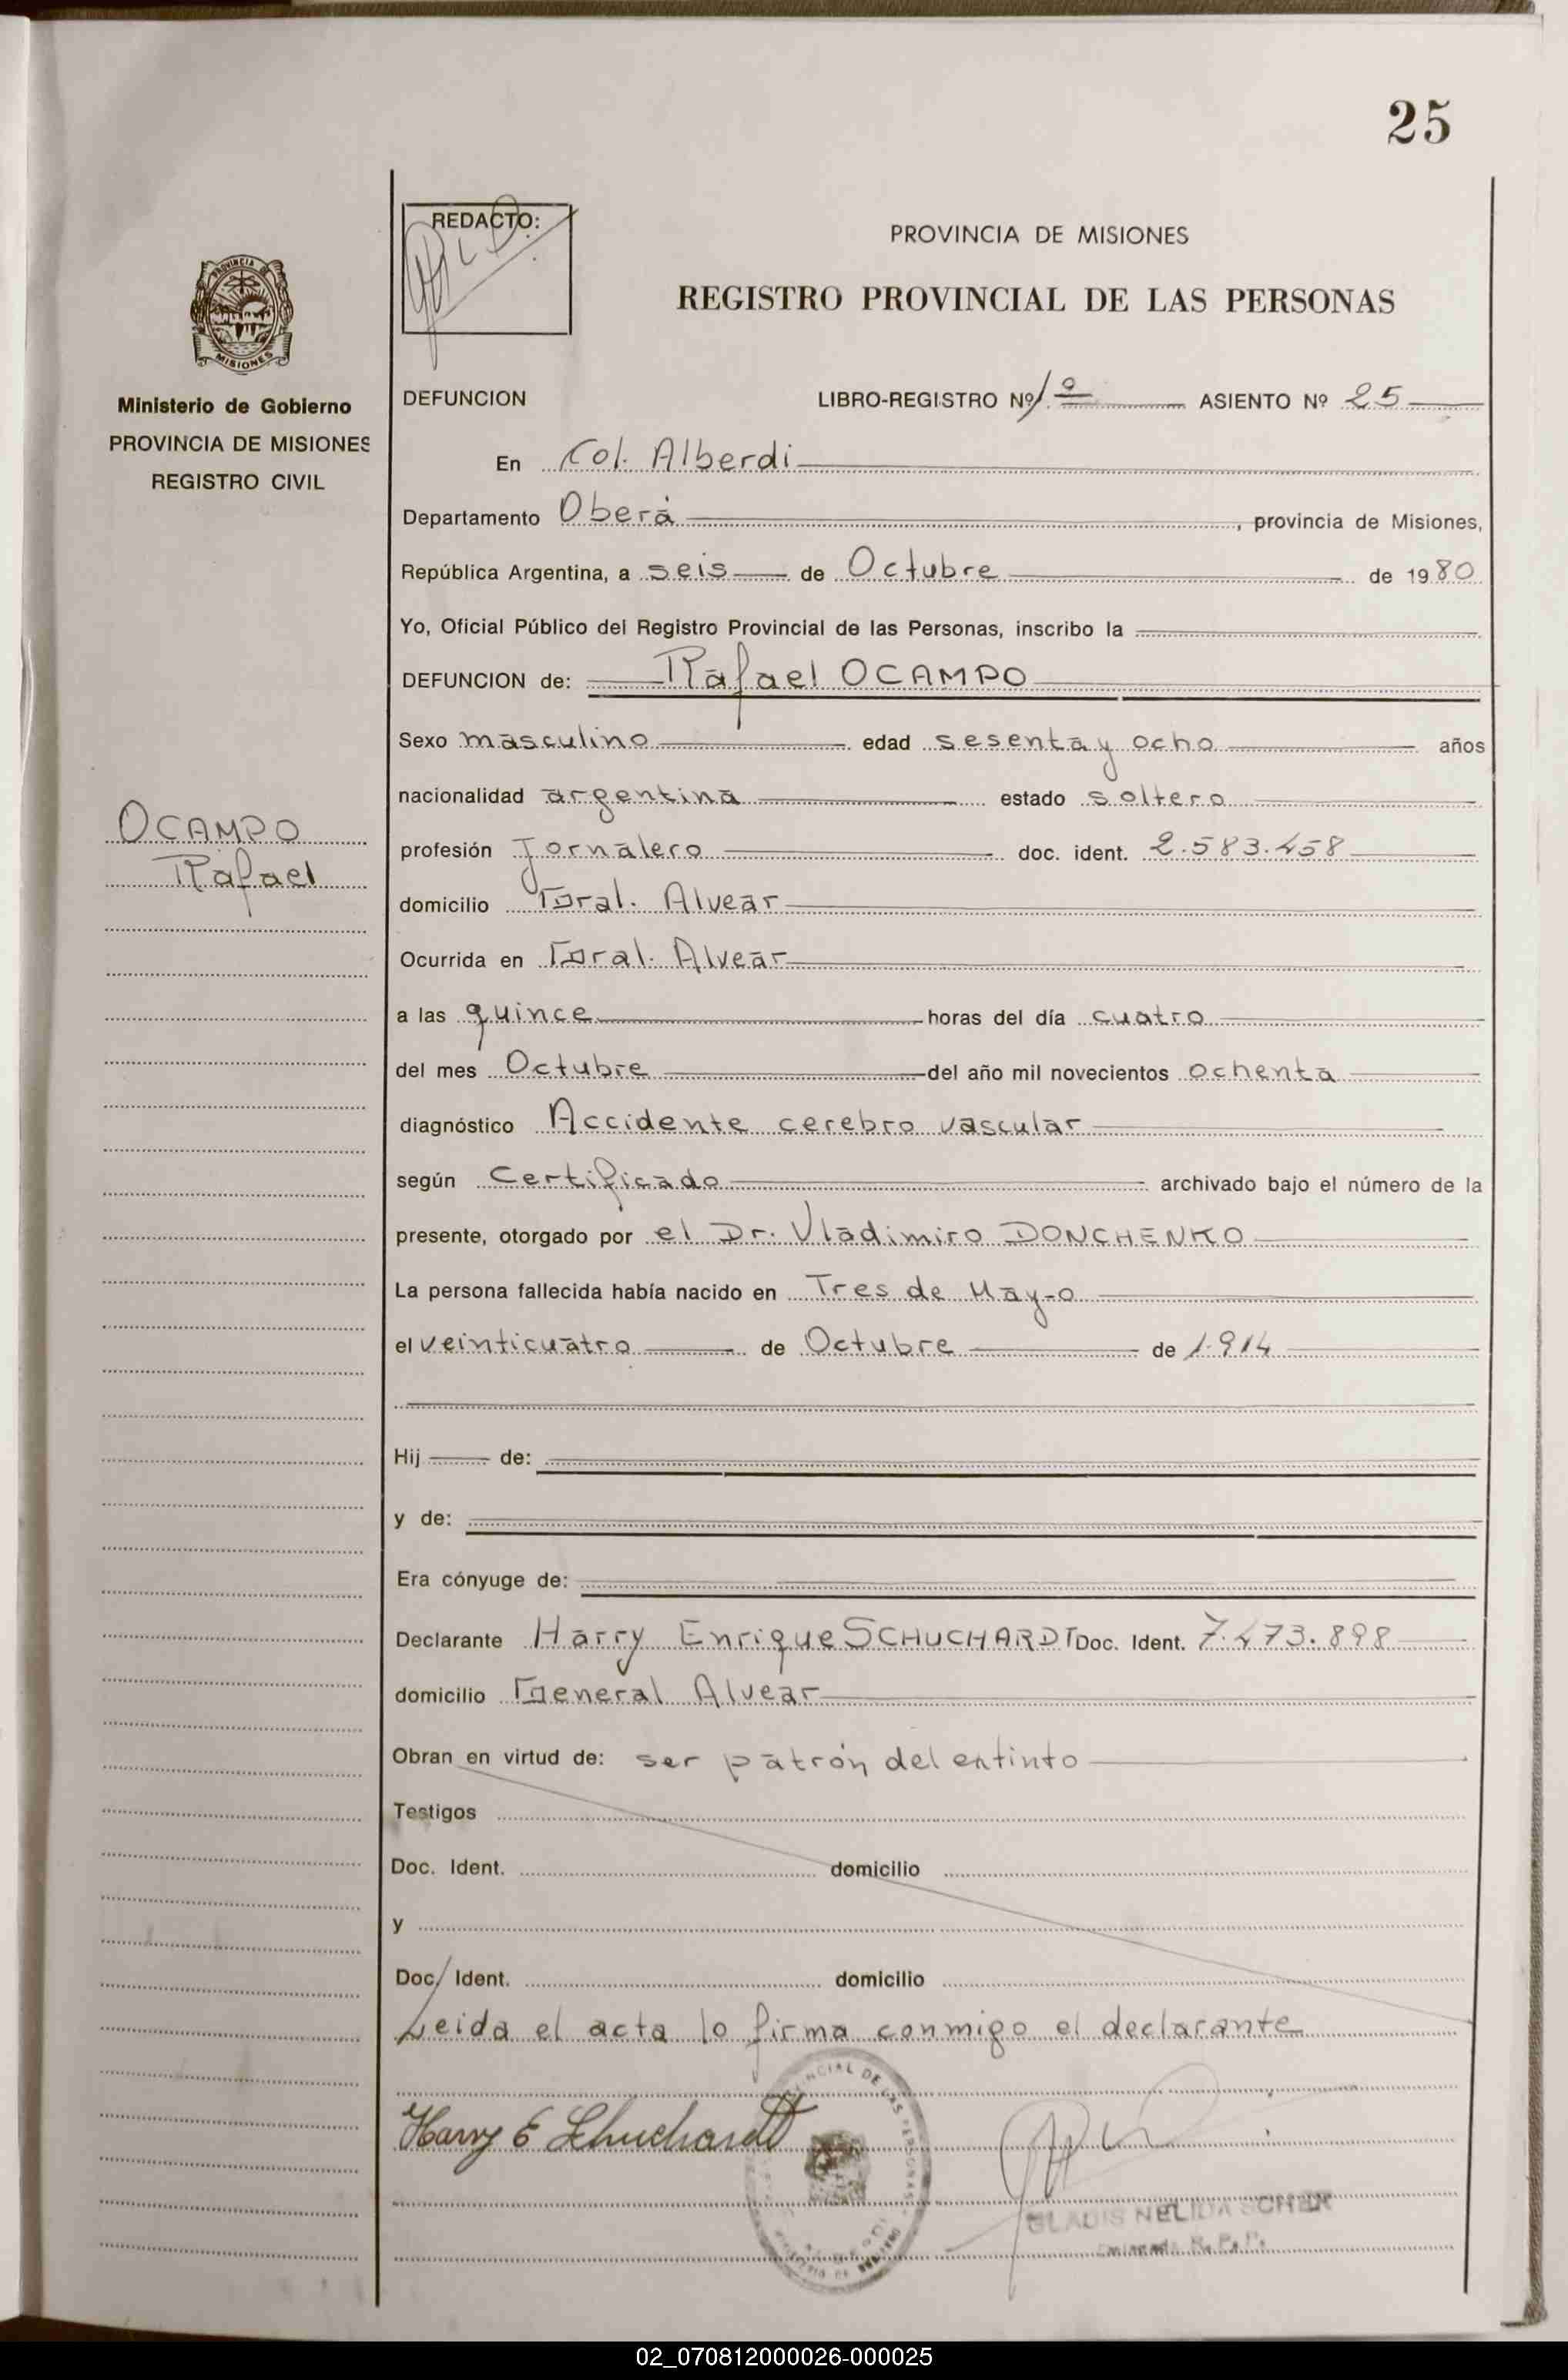 25
REDACTO:
PROVINCIA DE MISIONES
REGISTRO PROVINCIAL DE LAS PERSONAS
PROVINCIA DE
MISIONES
Ministerio de Gobierno
PROVINCIA DE MISIONES
REGISTRO CIVIL
DEFUNCION LIBRO-REGISTRO Nº 1º ASIENTO Nº 25
En Col. Alberdi
Departamento Oberá, provincia de Misiones,
República Argentina, a seis de Octubre de 1980
Yo, Oficial Público del Registro Provincial de las Personas, inscribo la
DEFUNCION de: Rafael OCAMPO
Sexo masculino edad sesenta y ocho años
nacionalidad argentina estado soltero
OCAMPO
Rafael
profesión Jornalero doc. ident. 2.583.458
domicilio Gral. Alvear
Ocurrida en Gral. Alvear
a las quince horas del día cuatro
del mes Octubre del año mil novecientos ochenta
diagnóstico Accidente cerebro vascular
según Certificado archivado bajo el número de la
presente, otorgado por el Dr. Vladimiro DONCHENKO
La persona fallecida había nacido en Tres de Mayo
el veinticuatro de Octubre de 1.914
Hij de:
y de:
Era cónyuge de:
Declarante Harry Enrique SCHUCHARDT Doc. Ident. 7.473.898
domicilio General Alvear
Obran en virtud de: ser patrón del extinto
Testigos
Doc. Ident. domicilio
y
Doc. Ident. domicilio
Leida el acta lo firma conmigo el declarante
Harry E Schuchardt
DE LAS PERSONAS
GLADIS NELIDA
R. P. P.
02_070812000026-000025